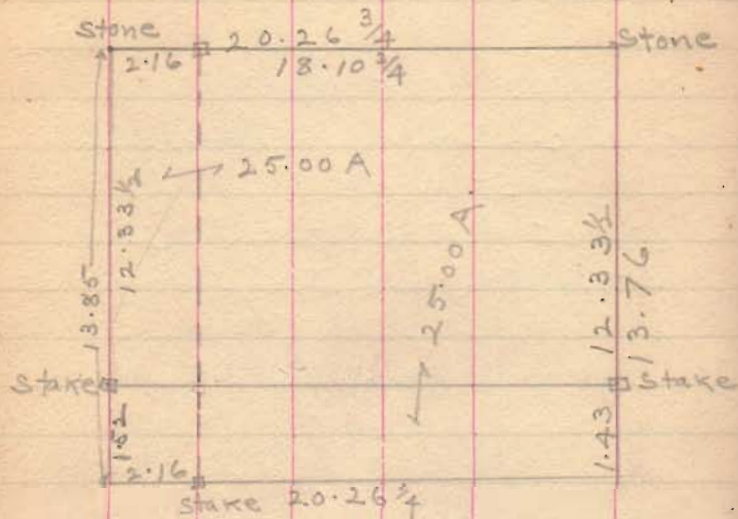 Stone
20.26 3/4
Stone
2.16
18.10 3/4
25.00 A
12.33 1/2
13.85
25.00 A.
12.33 1/2
13.76
Stake
Stake
1.52
1.43
2.16
Stake 20.26 3/4